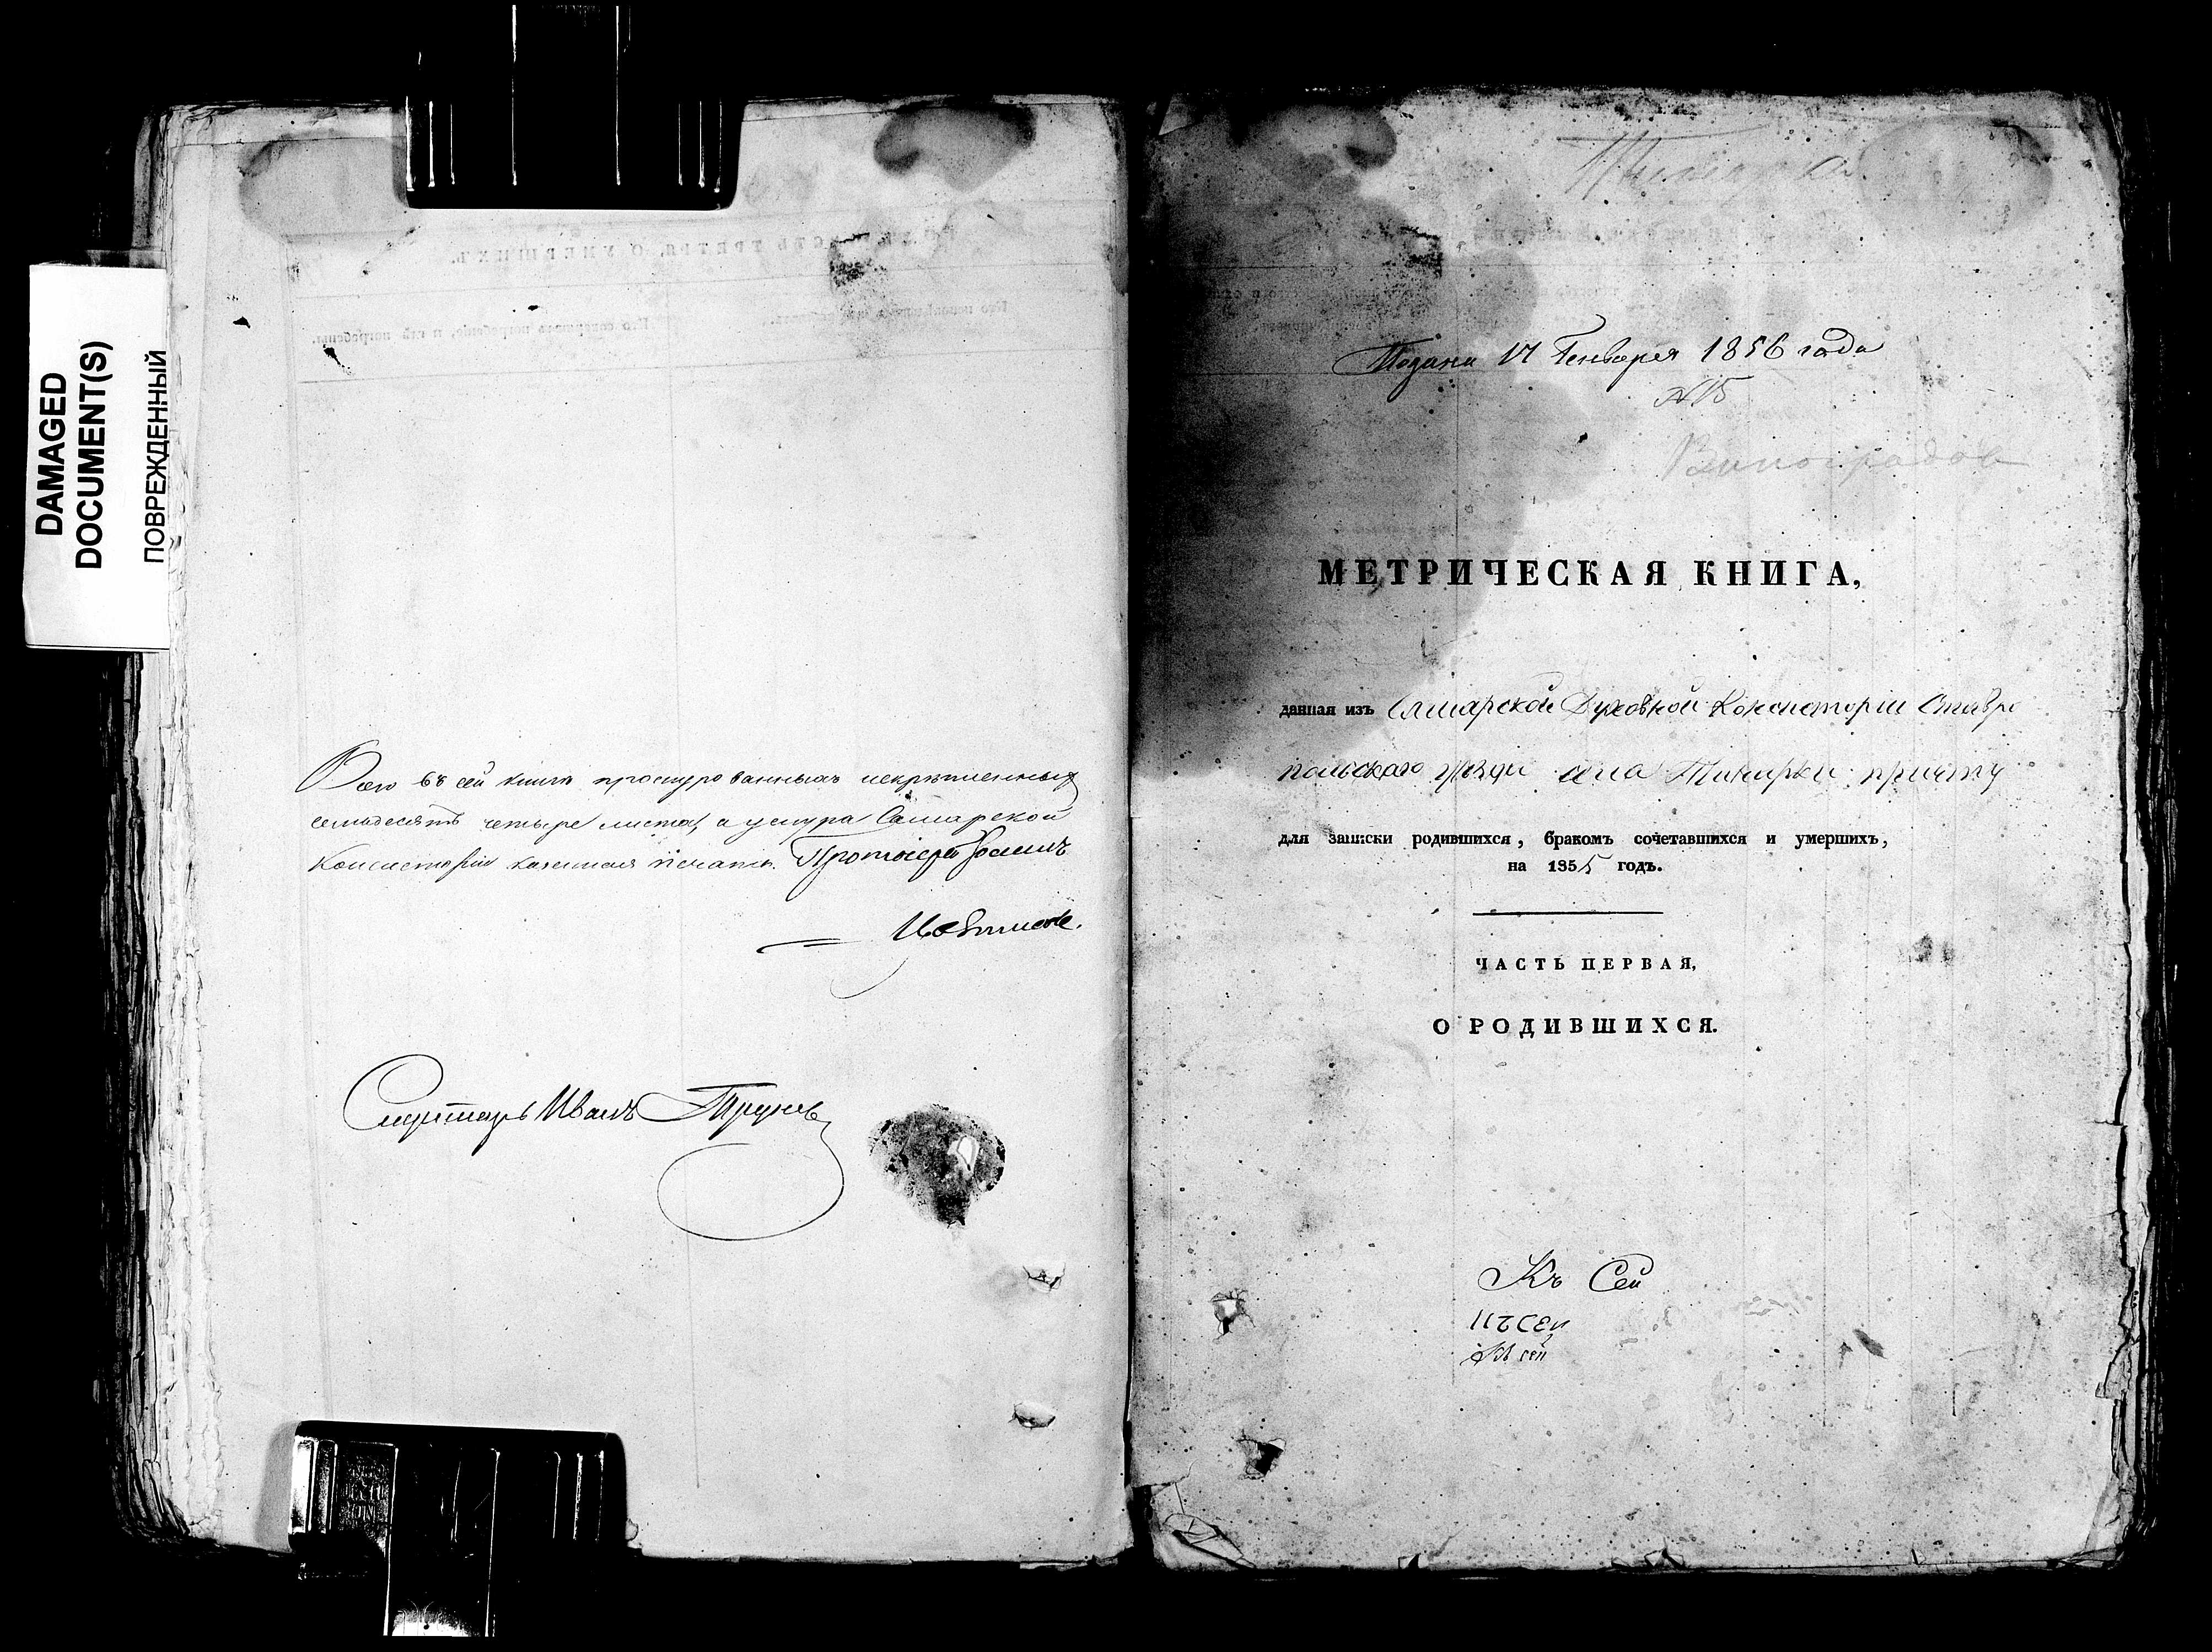 DAMAGED
DOCUMENT(S)
ПОВРЕЖДЕННЫЙ
въ сей книгѣ прошнурованныхъ искрѣпленныхъ
семьдесятъ четыре листа, а у шнура Самарской
Консисторіи казенная печать. Протоіерей Іоаннъ
Секретарь Иванъ
Подана 17 Генваря 1856 года
№ 15
Виноградов
МЕТРИЧЕСКАЯ КНИГА,
данная изъ Самарской Духовной Консисторіи Ставро
польскаго уѣзда села Тинарки причту
для записки родившихся, бракомъ сочетавшихся и умершихъ,
на 1855 годъ.
ЧАСТЬ ПЕРВАЯ,
О РОДИВШИХСЯ.
Къ Сей